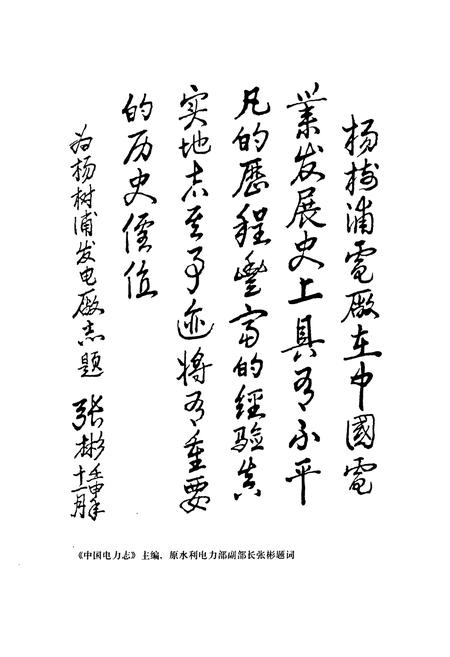 杨树浦電廠在中國電
業发展史上具有不平
凡的歷程豐富的經验真
实地志其事迹将有重要
的历史價值
为杨树浦发电廠志题 张彬 壬申年
十一月
《中国电力志》主编、原水利电力部副部长张彬题词